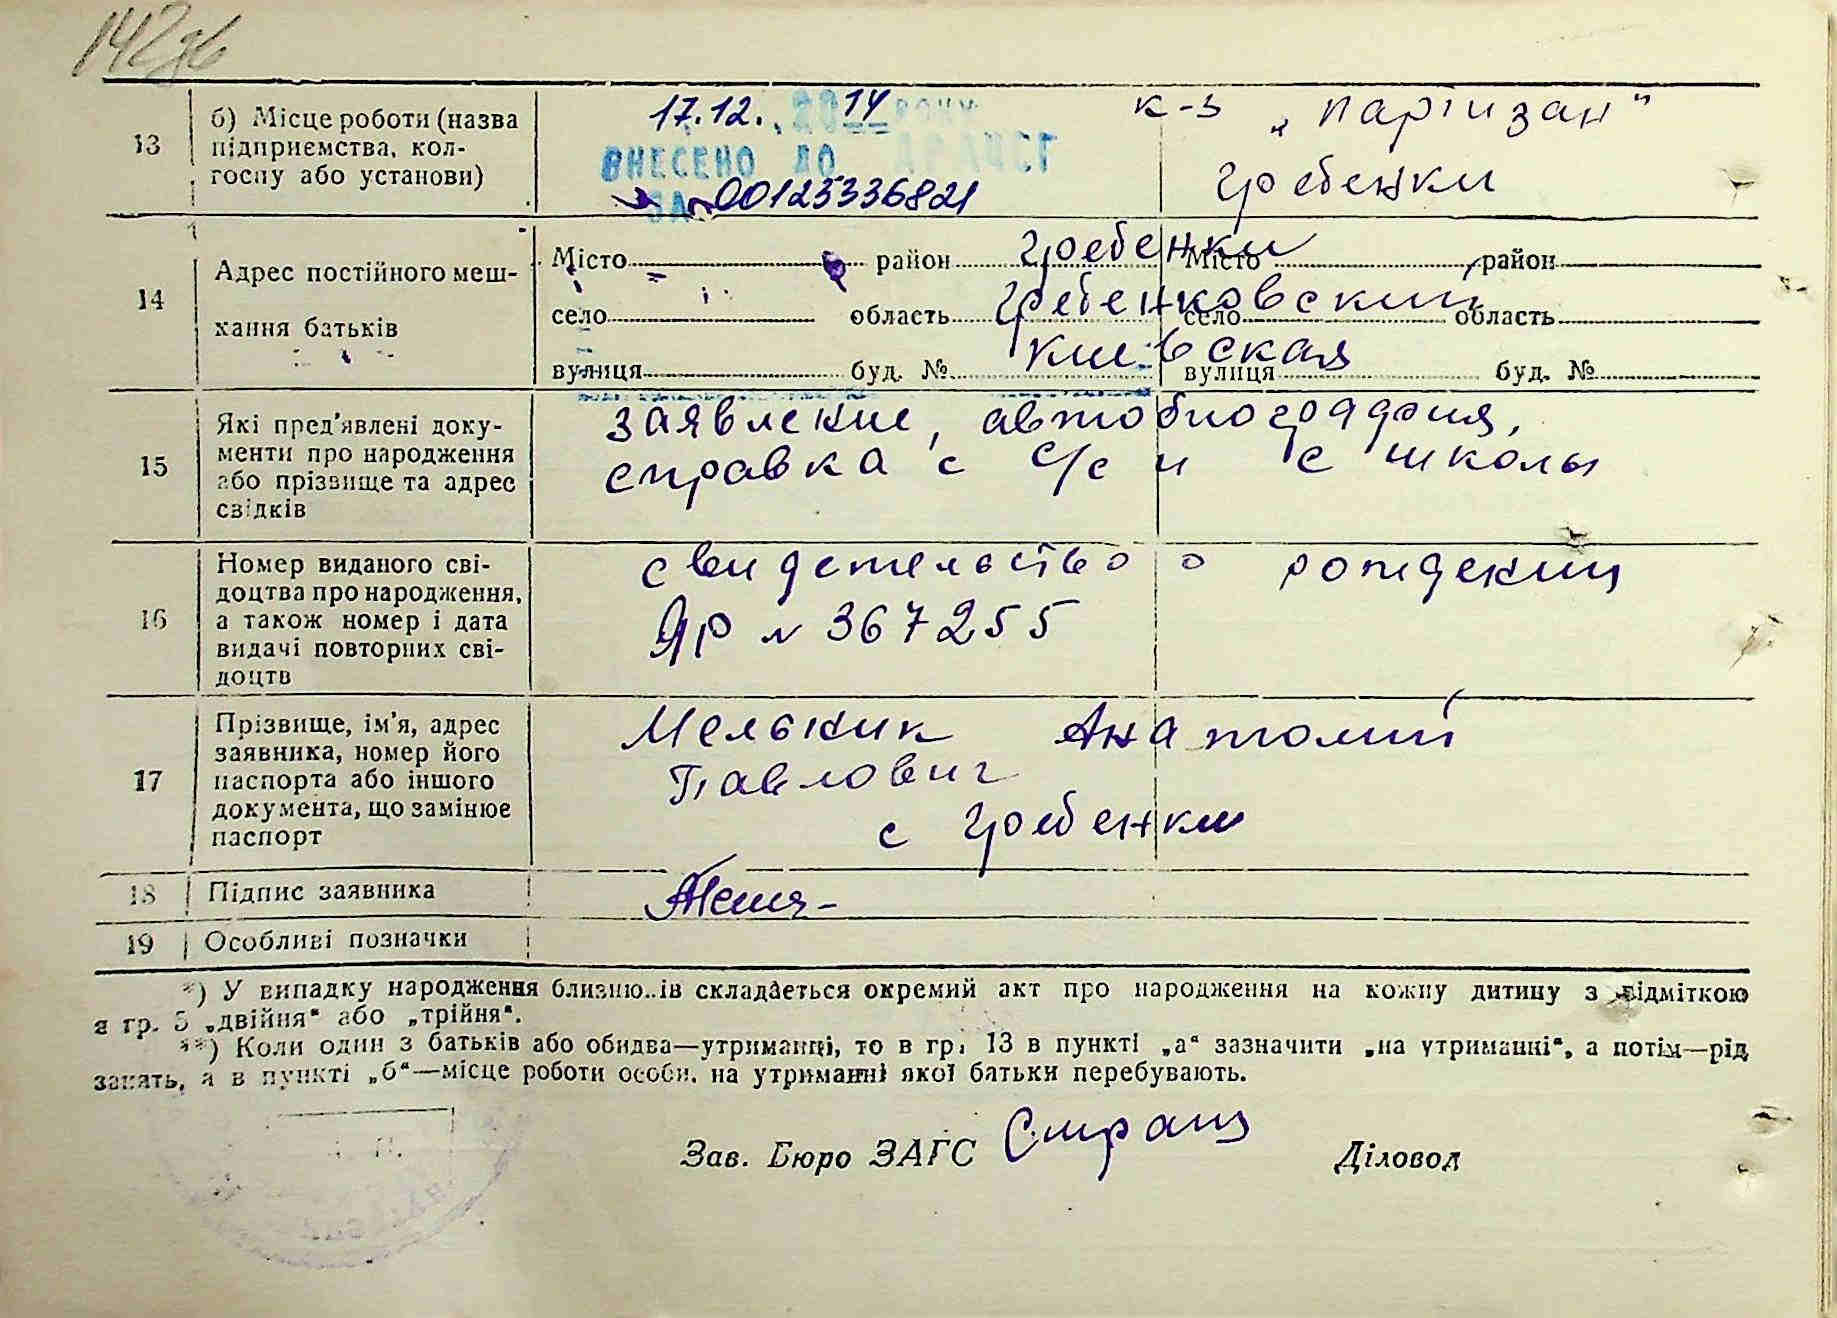 142
13
б) Місце роботи (назва
підприємства, кол-
госпу або установи)
17.12. 2014 року
ВНЕСЕНО ДО ДРАЦСГ
ЗА 00123336821
к-з „Партизан"
Гребенки
14
Адрес постійного меш-
хання батьків
Місто район Гребенки Місто район
село область Гребенковский село область
вулиця буд. № Киевская вулиця буд. №
15
Які пред'явлені доку-
менти про народження
або прізвище та адрес
свідків
заявление, автобиография,
справка с с/с и с школы
16
Номер виданого сві-
доцтва про народження,
а також номер і дата
видачі повторних сві-
доцтв
свидетельство о рождении
ЯР № 367255
17
Прізвище, ім'я, адрес
заявника, номер його
паспорта або іншого
документа, що замінює
паспорт
Мельник Анатолий
Павлович
с Гребенки
18
Підпис заявника
19
Особливі позначки
*) У випадку народження близню..ів складається окремий акт про народження на кожну дитину з відміткою
в гр. 5 „двійня“ або „трійня“.
**) Коли один з батьків або обидва—утриманці, то в гр. 13 в пункті „а“ зазначити „на утриманні“, а потім—рід
занять, а в пункті „б“—місце роботи особи, на утриманні якої батьки перебувають.
Зав. Бюро ЗАГС
Діловод